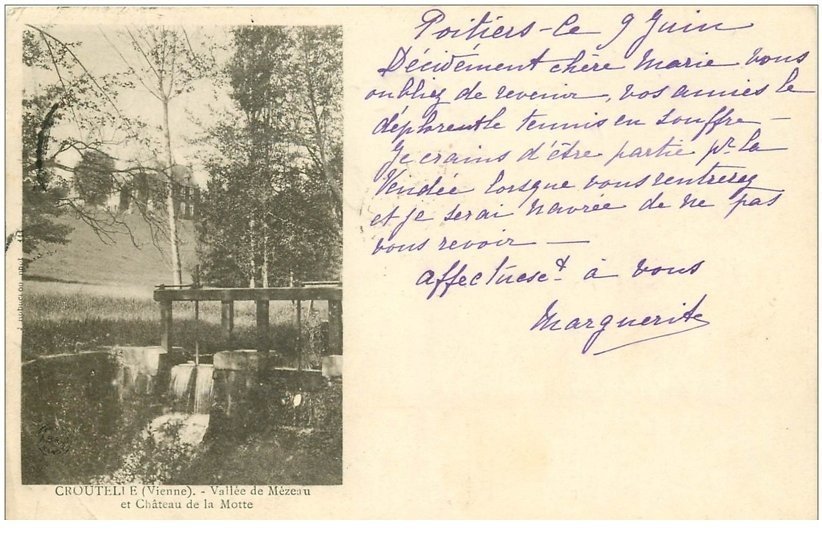 Poitiers - le 9 Juin
Décidément chère Marie vous
oubliez de revenir, vos amies le
déplorent le tennis en souffre -
Je crains d'être partie pr la
Vendée lorsque vous rentrerez
et je serai navrée de ne pas
vous revoir -
affectueset à vous
Marguerite
CROUTELLE (Vienne). - Vallée de Mézeau
et Château de la Motte